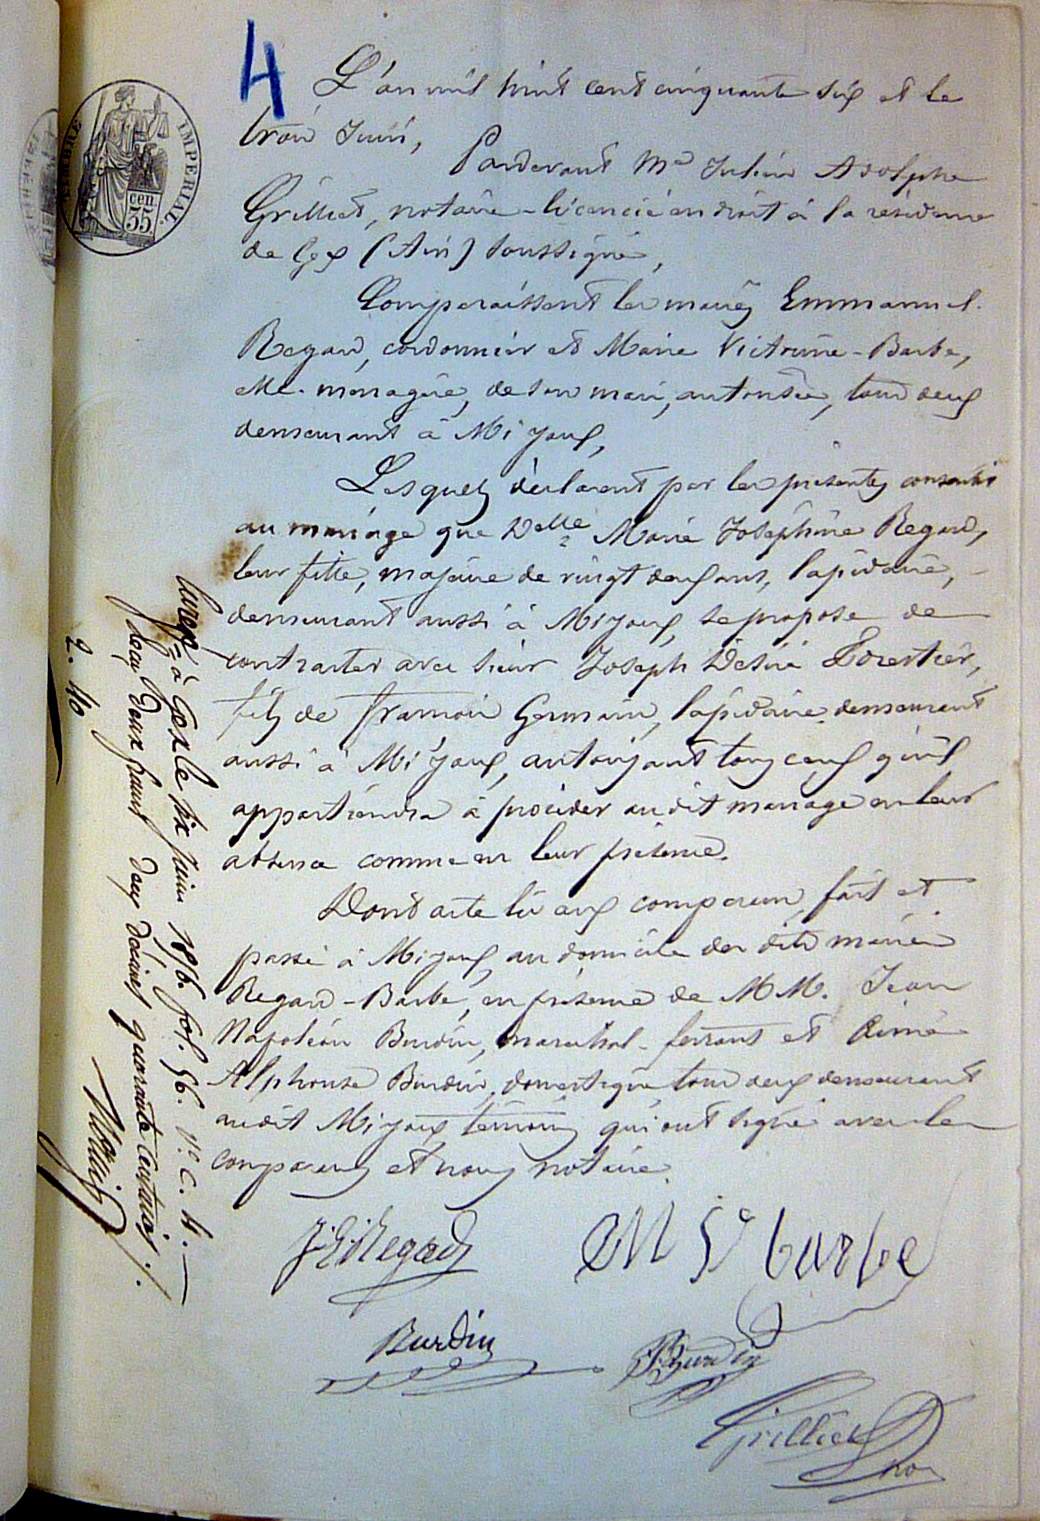 4
TIMBRE IMPERIAL
cen
35
L'an mil huit cent cinquante six et le
trois Juin,
Pardevant Me Julien Adolphe
Grilliet, notaire-licencié en droit à la résidence
de Gex (Ain) soussigné,
Comparaissent les mariés Emmanuel
Regard, cordonnier et Marie Victorine-Barbe,
elle-ménagère, de son mari, autorisée, tous deux
demeurant à Mijoux,
Lesquels déclarent par les présentes consentir
au mariage que Delle Marie Joséphine Regard,
leur fille, majeure de vingt deux ans, lapidaire,
demeurant aussi à Mijoux, se propose de
contracter avec sieur Joseph Désiré Forestier,
fils de François Germain, lapidaire demeurant
aussi à Mijoux, autorisant tous ceux qu'il
appartiendra à procéder audit mariage en leur
absence comme en leur présence.
Dont acte lu aux comparans, fait et
passé à Mijoux, au domicile des dits mariés
Regard-Barbe, en présence de MM. Jean
Napoléon Burdin, maréchal-ferrant et Aimé
Alphonse Burdin, domestique, tous deux demeurant
audit Mijoux, témoins qui ont signé avec les
comparans et nous notaire.
Regard
MV barbe
Burdin
Burdin
Grilliet
no
à Gex le six juin 1856. fol. 56. Vo c. 4.
reçu deux francs deux décimes quarante centimes.
2. 40